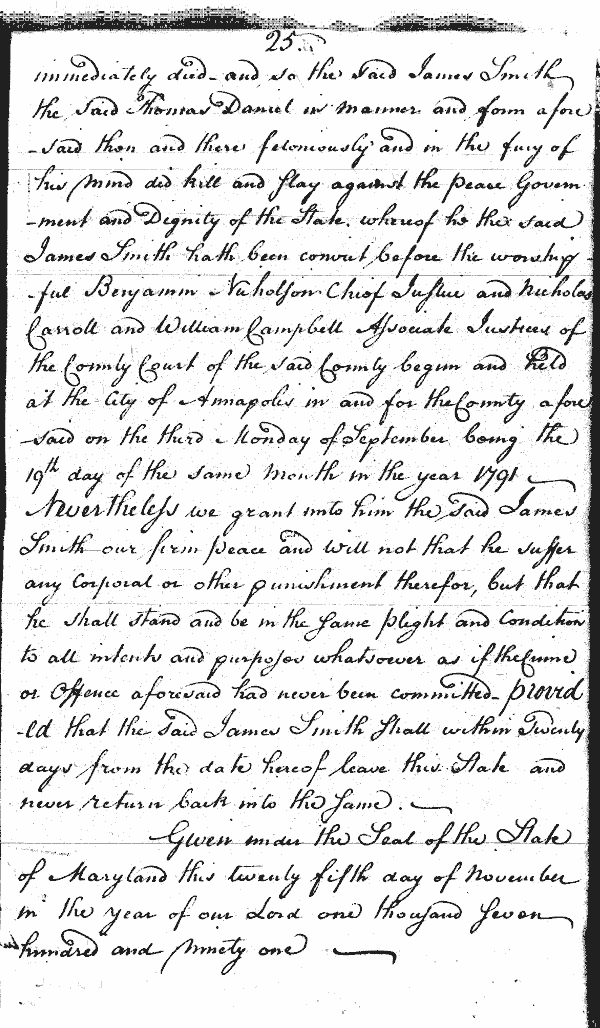 25.
immediately died- and so the said James Smith
the said Thomas Daniel in manner and form afore
-said then and there feloniously and in the fury of
his mind did kill and slay against the peace Govern
-ment and Dignity of the State. whereof he the said
James Smith hath been convict before the worship-
-ful Benjamin Nicholson Chief Justice and Nicholas
Carroll and William Campbell Associate Justices of
the County Court of the said County begun and held
at the City of Annapolis in and for the County afore
-said on the third Monday of September being the
19th day of the same month in the year 1791
Nevertheless we grant unto him the said James
Smith our firm peace and will not that he suffer
any Corporal or other punishment therefor, but that
he shall stand and be in the same plight and Condition
to all intents and purposes whatsoever as if the Crime
or Offence aforesaid had never been committed- provid
-ed that the said James Smith shall within Twenty
days from the date hereof leave this State and
never return back into the same.
Given under the Seal of the State
of Maryland this twenty fifth day of November
in the year of our Lord one thousand seven
hundred and ninety one